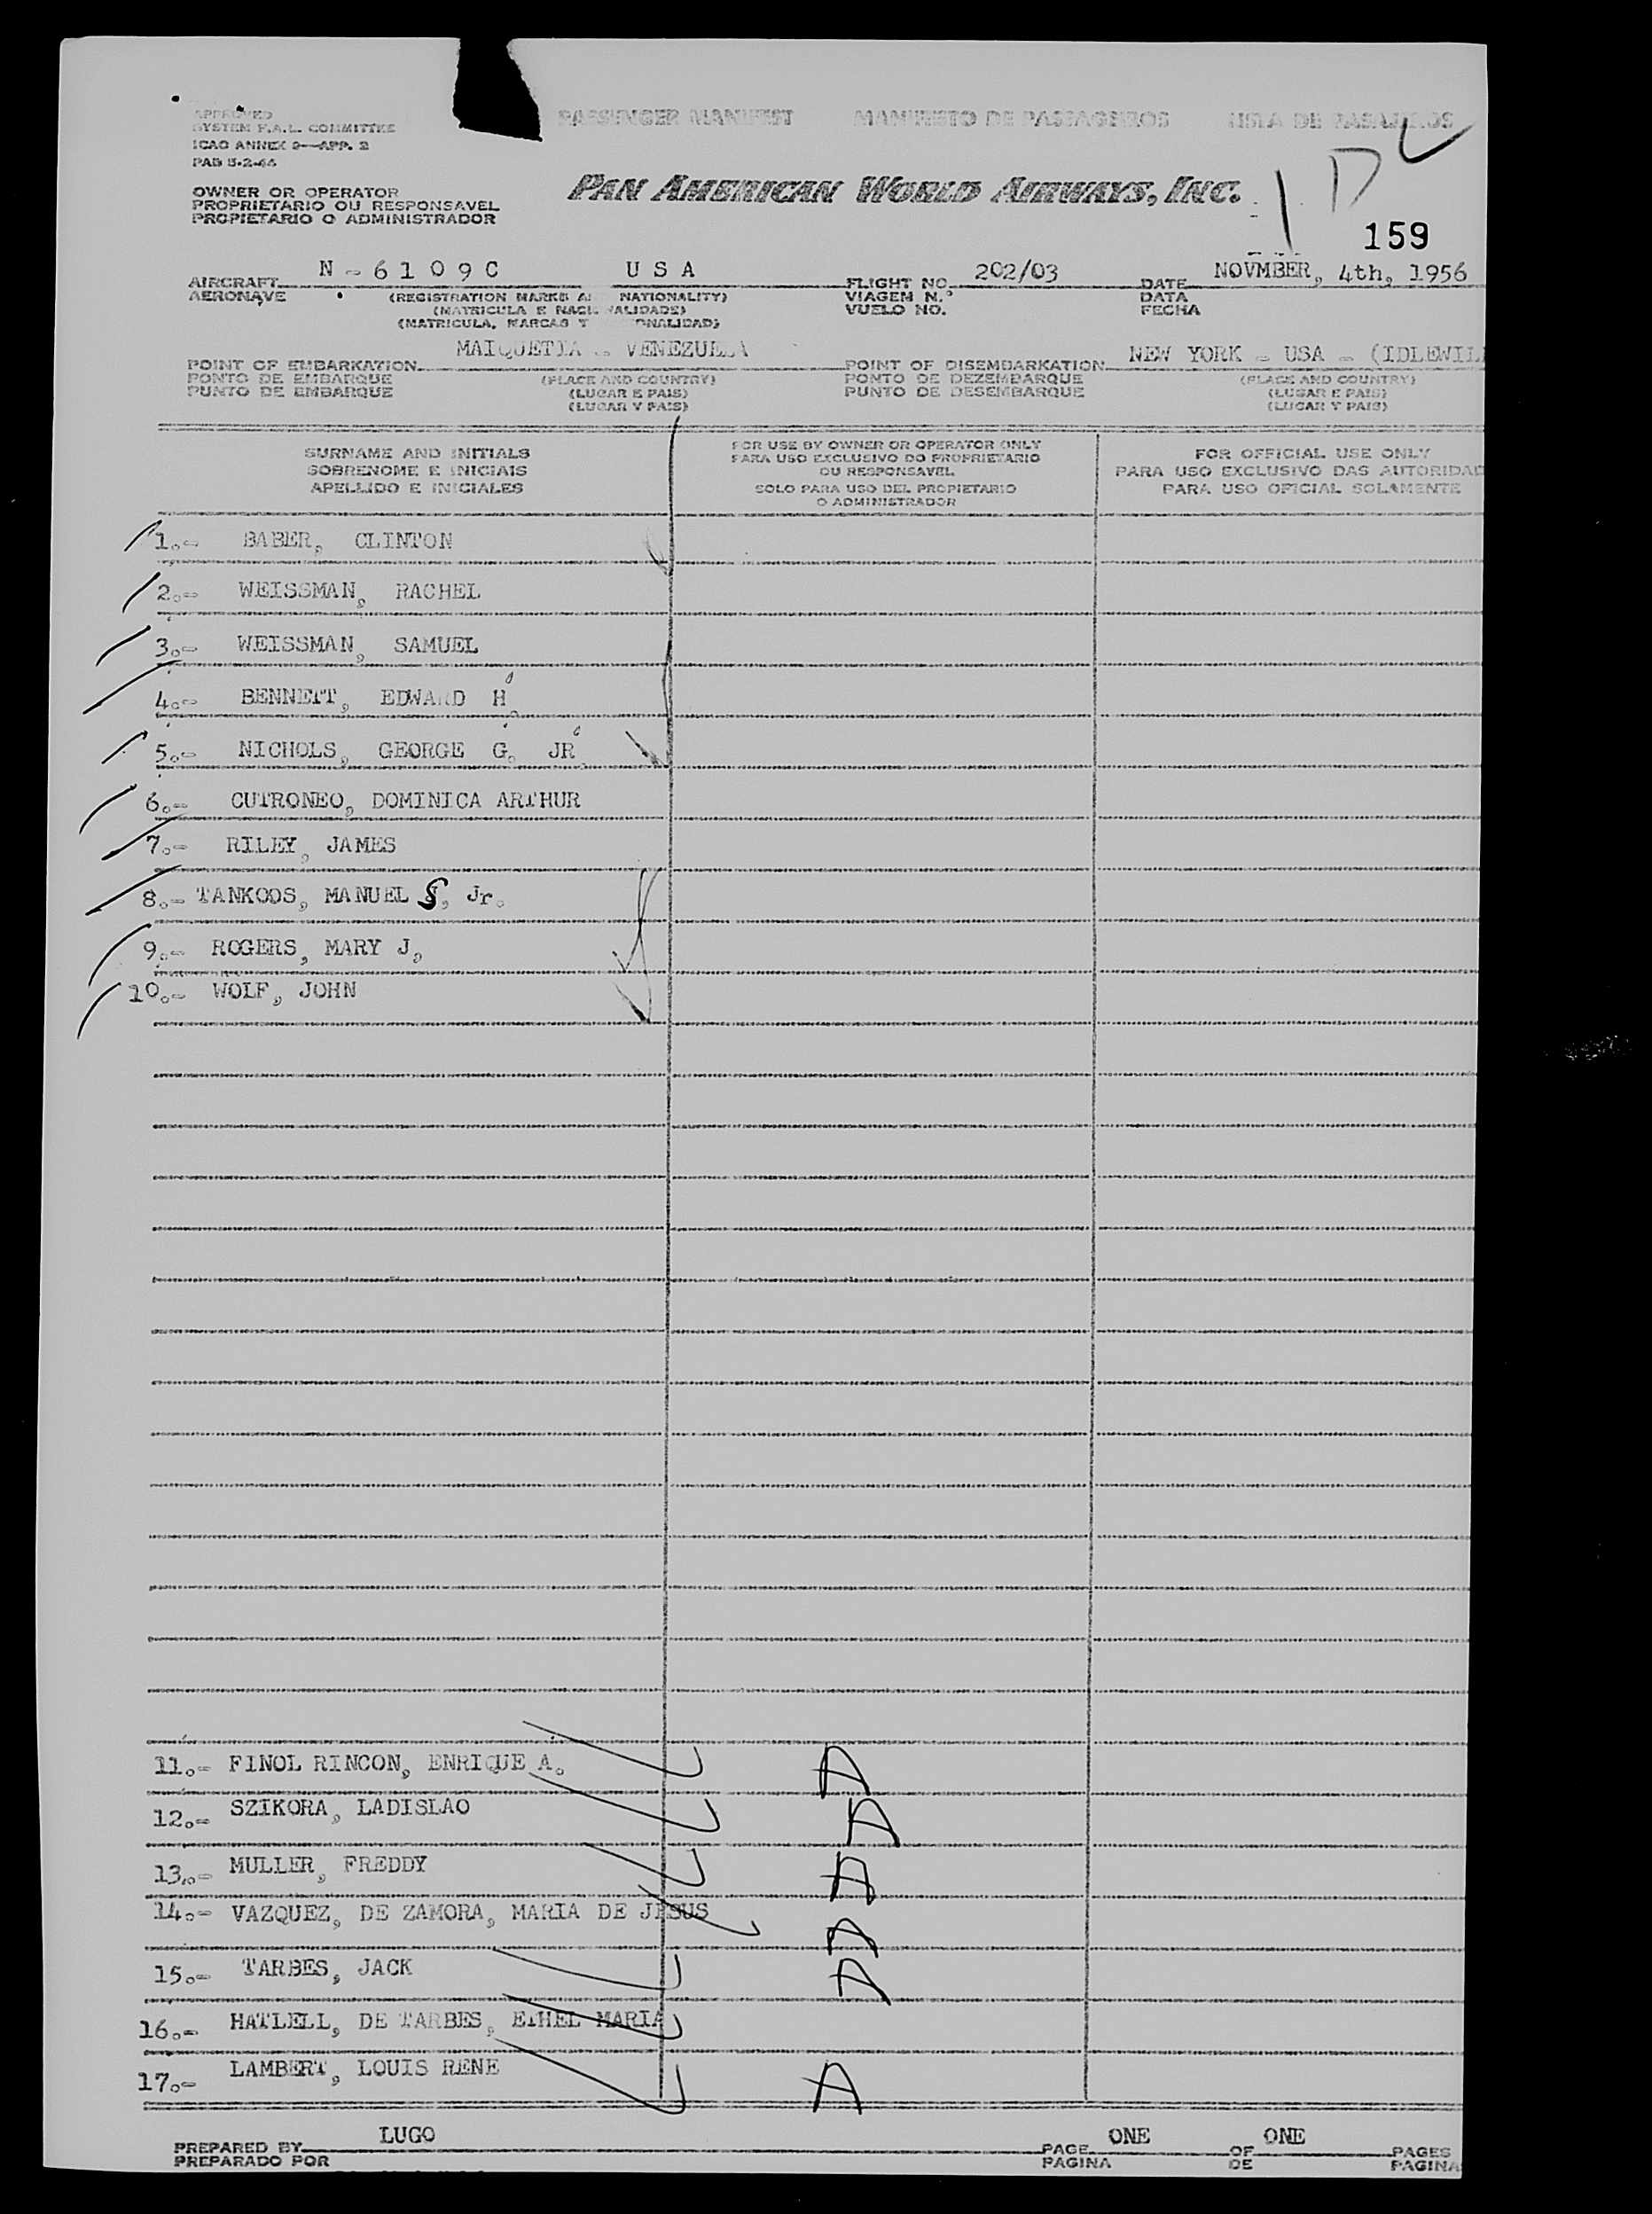 PASSENGER MANIFEST MANIFESTO DE PASSAGEIROS LISTA DE PASAJEROS
APPROVED
SYSTEM F.A.L. COMMITTEE
ICAO ANNEX 9—APP. 2
OWNER OR OPERATOR
PROPRIETARIO OU RESPONSAVEL
PROPIETARIO O ADMINISTRADOR
PAN AMERICAN WORLD AIRWAYS, INC.
159
AIRCRAFT N - 6109C USA FLIGHT NO. 202/03 DATE NOVMBER, 4th, 1956
AERONAVE (REGISTRATION MARKS A NATIONALITY) VIAGEM N.º DATA
(MATRICULA E NACI ALIDADE) VUELO NO. FECHA
(MATRICULA, MARCAS Y ONALIDAD)
POINT OF EMBARKATION MAIQUETIA - VENEZUELA POINT OF DISEMBARKATION NEW YORK - USA - (IDLEWIL
PONTO DE EMBARQUE (PLACE AND COUNTRY) PONTO DE DEZEMBARQUE (PLACE AND COUNTRY)
PUNTO DE EMBARQUE (LUGAR E PAIS) PUNTO DE DESEMBARQUE (LUGAR E PAIS)
(LUGAR Y PAIS) (LUGAR Y PAIS)
SURNAME AND INITIALS
SOBRENOME E INICIAIS
APELLIDO E INICIALES
FOR USE BY OWNER OR OPERATOR ONLY
PARA USO EXCLUSIVO DO PROPRIETARIO
OU RESPONSAVEL
SOLO PARA USO DEL PROPIETARIO
O ADMINISTRADOR
FOR OFFICIAL USE ONLY
PARA USO EXCLUSIVO DAS AUTORIDAD
PARA USO OFICIAL SOLAMENTE
1.- BABER, CLINTON
2.- WEISSMAN, RACHEL
3.- WEISSMAN, SAMUEL
4.- BENNETT, EDWARD H.
5.- NICHOLS, GEORGE G. JR.
6.- CUTRONEO, DOMINICA ARTHUR
7.- RILEY, JAMES
8.- TANKOOS, MANUEL S, Jr.
9.- ROGERS, MARY J,
10.- WOLF, JOHN
11.- FINOL RINCON, ENRIQUE A. A
12.- SZIKORA, LADISLAO A
13.- MULLER, FREDDY A
14.- VAZQUEZ, DE ZAMORA, MARIA DE JESUS A
15.- TARBES, JACK A
16.- HATLELL, DE TARBES, ETHEL MARIA
17.- LAMBERT, LOUIS RENE A
PREPARED BY LUGO PAGE ONE OF ONE PAGES
PREPARADO POR PAGINA DE PAGINA